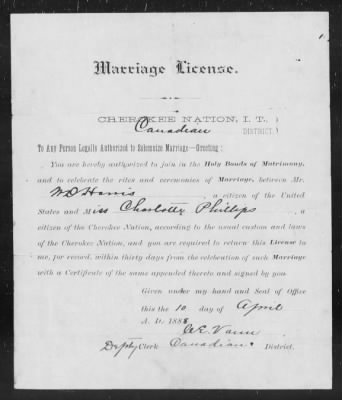 Marriage License.
CHEROKEE NATION, I. T., )
Canadian DISTRICT. )
To Any Person Legally Authorized to Solemnize Marriage—Greeting:
You are hereby authorized to join in the Holy Bonds of Matrimony,
and to celebrate the rites and ceremonies of Marriage, between Mr.
W D Harris, a citizen of the United
States and Miss Charlotte Phillips, a
citizen of the Cherokee Nation, according to the usual custom and laws
of the Cherokee Nation, and you are required to return this License to
me, for record, within thirty days from the celebration of such Marriage
with a Certificate of the same appended thereto and signed by you.
Given under my hand and Seal of Office
this the 10 day of April
A. D. 1888
C. E. Vann
Depty Clerk Canadian District.